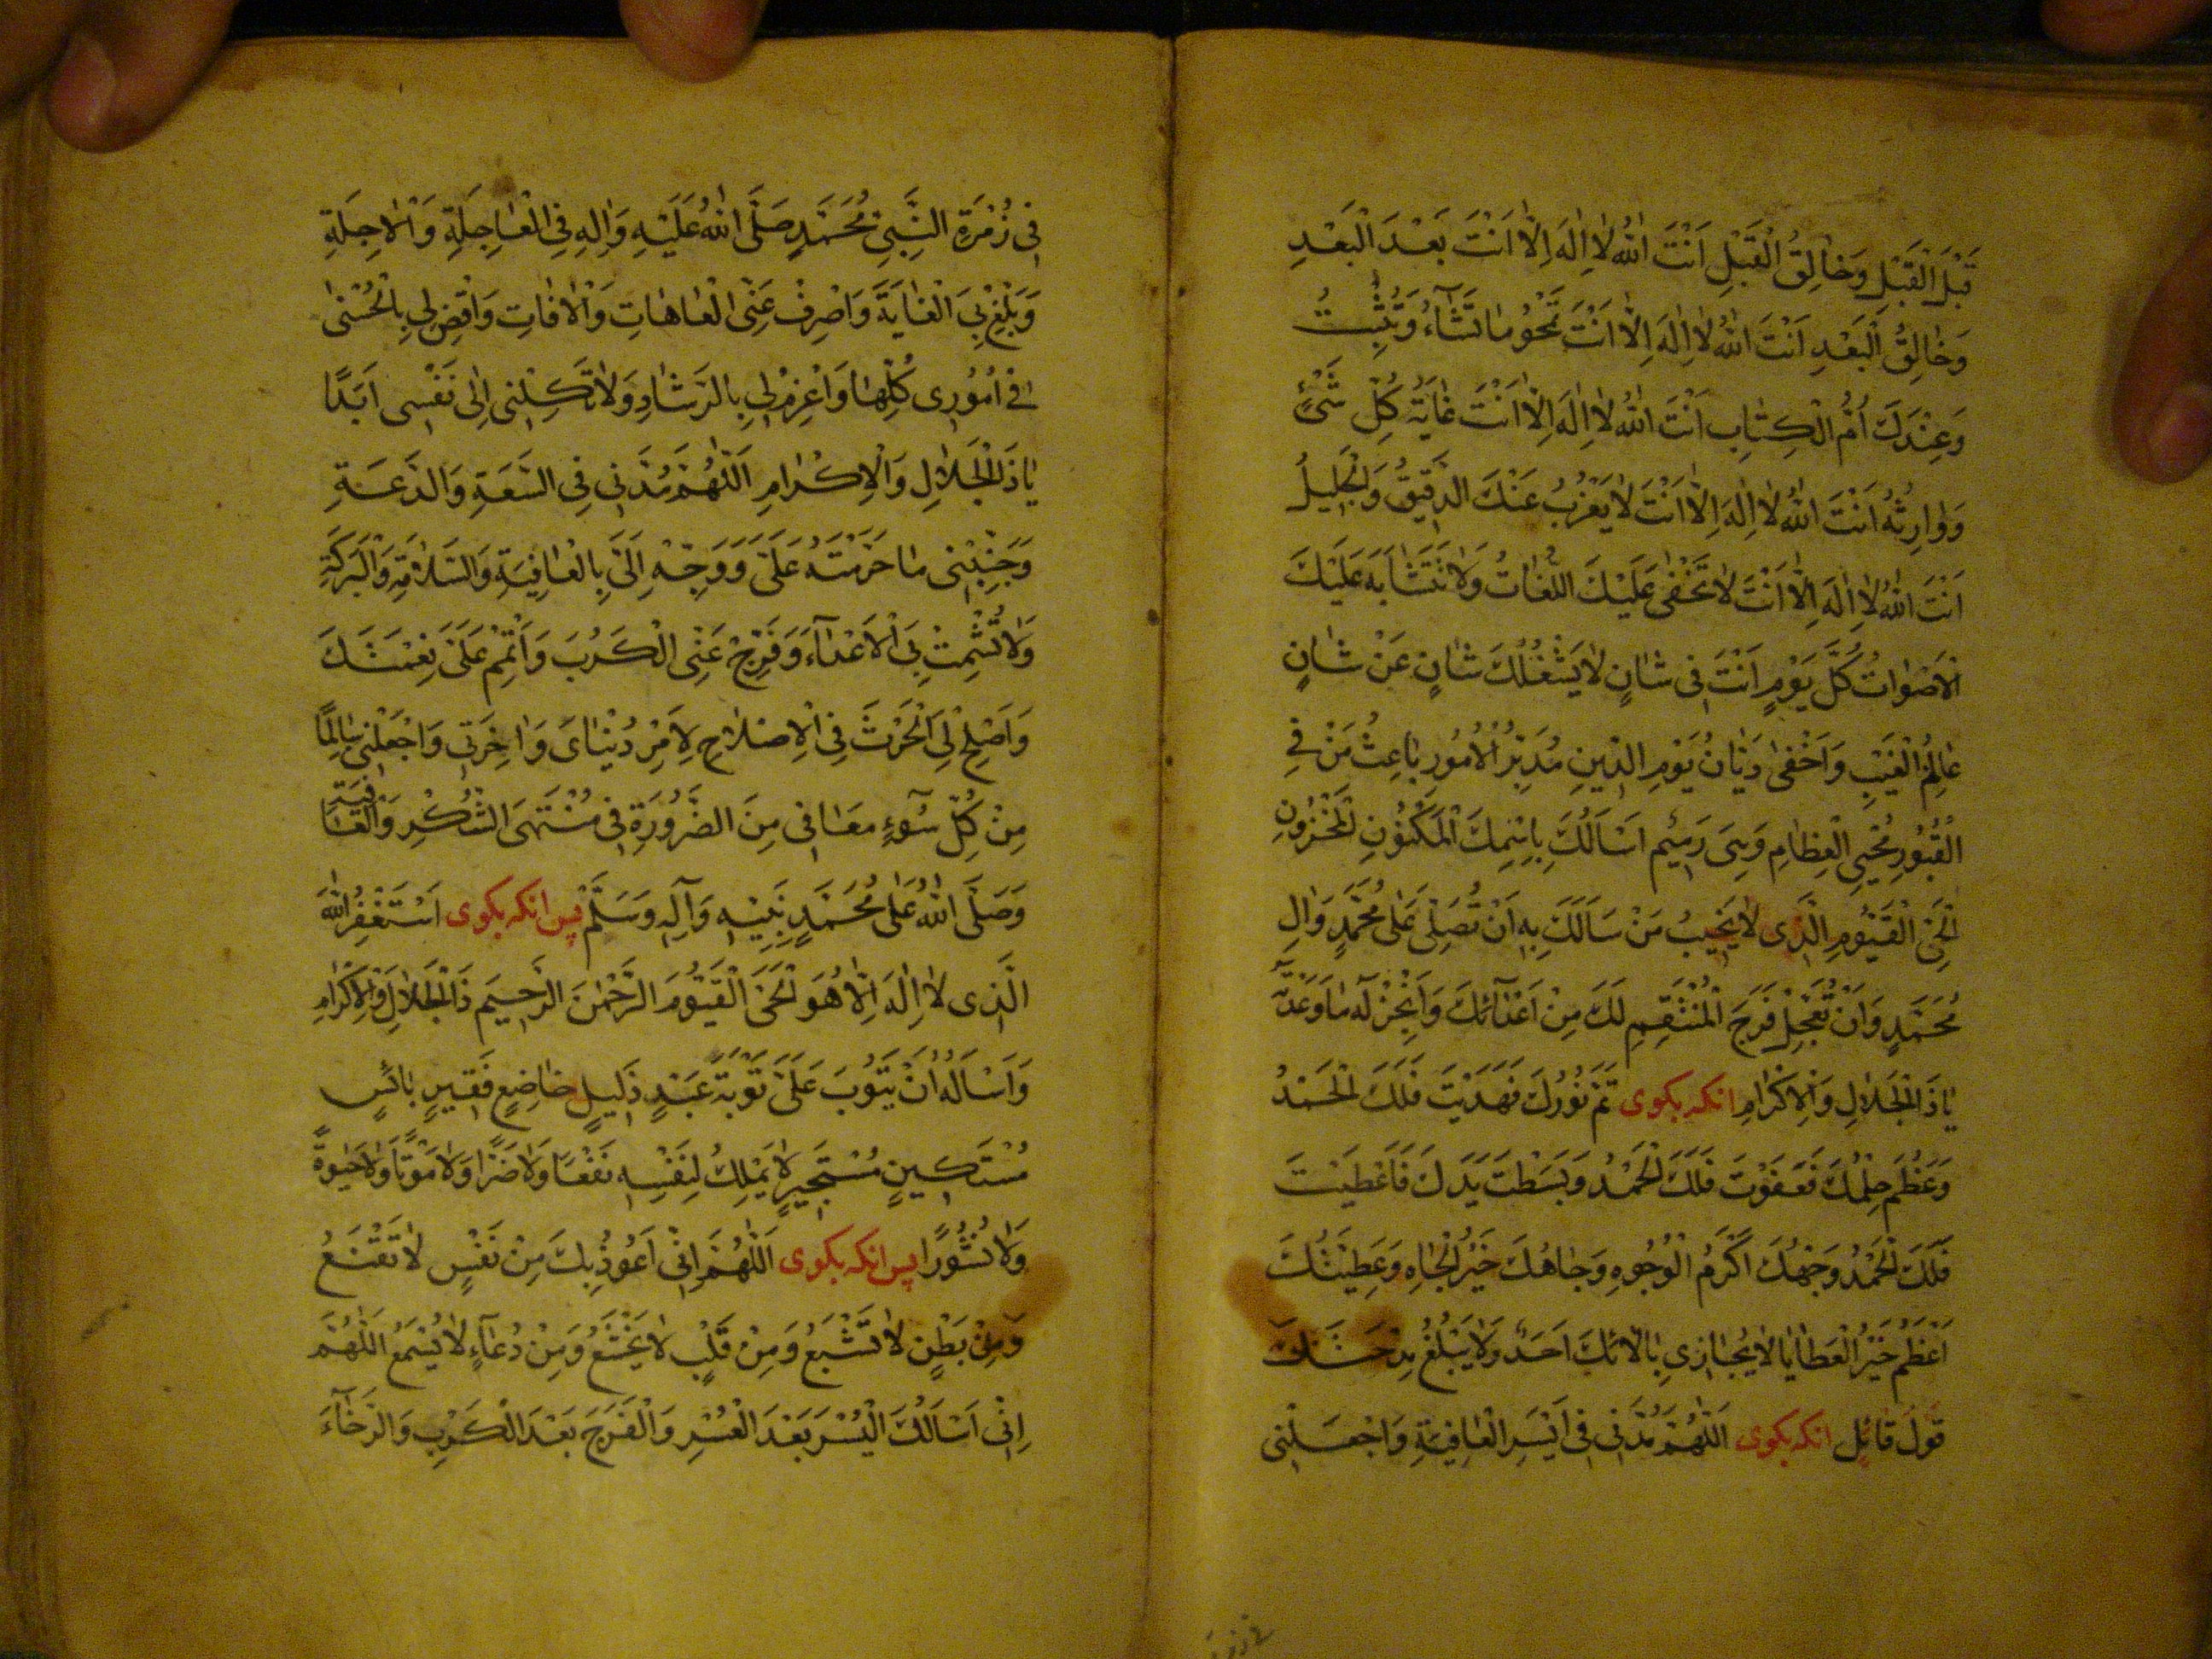 قَبْلَ الْقَبْلِ وَخٰالِقُ الْقَبْلِ اَنْتَ اللّٰهُ لاٰ اِلٰهَ اِلّاٰ اَنْتَ بَعْدَ الْبَعْدِ
وَخٰالِقُ الْبَعْدِ اَنْتَ اللّٰهُ لاٰ اِلٰهَ اِلّاٰ اَنْتَ تَمْحُو مٰا تَشٰآءُ وَتُثْبِتُ
وَعِنْدَكَ اُمُّ الْكِتٰابِ اَنْتَ اللّٰهُ لاٰ اِلٰهَ اِلّاٰ اَنْتَ غٰايَةُ كُلِّ شَيْءٍ
وَوٰارِثُهُ اَنْتَ اللّٰهُ لاٰ اِلٰهَ اِلّاٰ اَنْتَ لاٰ يَعْزُبُ عَنْكَ الدَّقِيقُ وَالْجَلِيلُ
اَنْتَ اللّٰهُ لاٰ اِلٰهَ اِلّاٰ اَنْتَ لاٰ تَخْفٰى عَلَيْكَ اللُّغٰاتُ وَلاٰ تَتَشٰابَهُ عَلَيْكَ
الْاَصْوٰاتُ كُلَّ يَوْمٍ اَنْتَ فِى شٰانٍ لاٰ يَشْغَلُكَ شٰانٌ عَنْ شٰانٍ
عٰالِمُ الْغَيْبِ وَاَخْفٰى دَيّٰانُ يَوْمِ الدِّينِ مُدَبِّرُ الْاُمُورِ بٰاعِثُ مَنْ فِى
الْقُبُورِ مُحْيِى الْعِظٰامِ وَهِىَ رَمِيمٌ اَسْاَلُكَ بِاِسْمِكَ الْمَكْنُونِ الْمَخْزُونِ
الْحَىِّ الْقَيُّومِ الَّذِى لاٰ يَخِيبُ مَنْ سَاَلَكَ بِهِ اَنْ تُصَلِّىَ عَلٰى مُحَمَّدٍ وَاٰلِ
مُحَمَّدٍ وَاَنْ تُعَجِّلَ فَرَجَ الْمُنْتَقِمِ لَكَ مِنْ اَعْدٰآئِكَ وَاَنْجِزْ لَهُ مٰا وَعَدْتَهُ
يٰا ذَا الْجَلاٰلِ وَالْاِكْرٰامِ انكه بكوى تَمَّ نُورُكَ فَهَدَيْتَ فَلَكَ الْحَمْدُ
وَعَظُمَ حِلْمُكَ فَعَفَوْتَ فَلَكَ الْحَمْدُ وَبَسَطْتَ يَدَكَ فَاَعْطَيْتَ
فَلَكَ الْحَمْدُ وَجْهُكَ اَكْرَمُ الْوُجُوهِ وَجٰاهُكَ خَيْرُ الْجٰاهِ وَعَطِيَّتُكَ
اَعْظَمُ خَيْرُ الْعَطٰايٰا لاٰ يُجٰازِى بِاٰلاٰئِكَ اَحَدٌ وَلاٰ يَبْلُغُ مِدْحَتَكَ
قَوْلَ قٰائِلٍ انكه بكوى اَللّٰهُمَّ مُدَّنِى فِى اَيْسَرِ الْعٰافِيَةِ وَاجْعَلْنِى
فِى زُمْرَةِ النَّبِىِّ مُحَمَّدٍ صَلَّى اللّٰهُ عَلَيْهِ وَاٰلِهِ فِى الْعٰاجِلَةِ وَالْاٰجِلَةِ
وَبَلِّغْ بِىَ الْغٰايَةَ وَاصْرِفْ عَنِّى الْعٰاهٰاتِ وَالْاٰفٰاتِ وَاقْضِ لِى بِالْحُسْنٰى
فِى اُمُورِى كُلِّهٰا وَاعْزِمْ لِى بِالرَّشٰادِ وَلاٰ تَكِلْنِى اِلٰى نَفْسِى اَبَدًا
يٰا ذَا الْجَلاٰلِ وَالْاِكْرٰامِ اَللّٰهُمَّ مُدَّنِى فِى السَّعَةِ وَالدَّعَةِ
وَجَنِّبْنِى مٰا حَرَّمْتَهُ عَلَىَّ وَوَجِّهْ اِلَىَّ بِالْعٰافِيَةِ وَالسَّلاٰمَةِ وَالْبَرَكَةِ
وَلاٰ تُشْمِتْ بِىَ الْاَعْدٰآءَ وَفَرِّجْ عَنِّى الْكَرْبَ وَاَتْمِمْ عَلَىَّ نِعْمَتَكَ
وَاَصْلِحْ لِىَ الْحَرْثَ فِى الْاِصْلاٰحِ لِاَمْرِ دُنْيٰاىَ وَاٰخِرَتِى وَاجْعَلْنِى سٰالِمًا
مِنْ كُلِّ سُوٓءٍ مُعٰافًى مِنَ الضَّرُورَةِ فِى مُنْتَهَى الشُّكْرِ وَالْعٰافِيَةِ
وَصَلَّى اللّٰهُ عَلٰى مُحَمَّدٍ نَبِيِّهِ وَآلِهِ وَسَلَّمَ پس انكه بكوى اَسْتَغْفِرُ اللّٰهَ
الَّذِى لاٰ اِلٰهَ اِلّاٰ هُوَ الْحَىَّ الْقَيُّومَ الرَّحْمٰنَ الرَّحِيمَ ذَا الْجَلاٰلِ وَالْاِكْرٰامِ
وَاَسْاَلُهُ اَنْ يَتُوبَ عَلَىَّ تَوْبَةَ عَبْدٍ ذَلِيلٍ خٰاضِعٍ فَقِيرٍ بٰائِسٍ
مُسْتَكِينٍ مُسْتَجِيرٍ لاٰ يَمْلِكُ لِنَفْسِهِ نَفْعًا وَلاٰ ضَرًّا وَلاٰ مَوْتًا وَلاٰ حَيٰوةً
وَلاٰ نُشُورًا پس انكه بكوى اَللّٰهُمَّ اِنِّى اَعُوذُ بِكَ مِنْ نَفْسٍ لاٰ تَقْنَعُ
وَمِنْ بَطْنٍ لاٰ تَشْبَعُ وَمِنْ قَلْبٍ لاٰ يَخْشَعُ وَمِنْ دُعٰآءٍ لاٰ يُسْمَعُ اَللّٰهُمَّ
اِنِّى اَسْاَلُكَ الْيُسْرَ بَعْدَ الْعُسْرِ وَالْفَرَجَ بَعْدَ الْكَرْبِ وَالرَّخٰآءَ